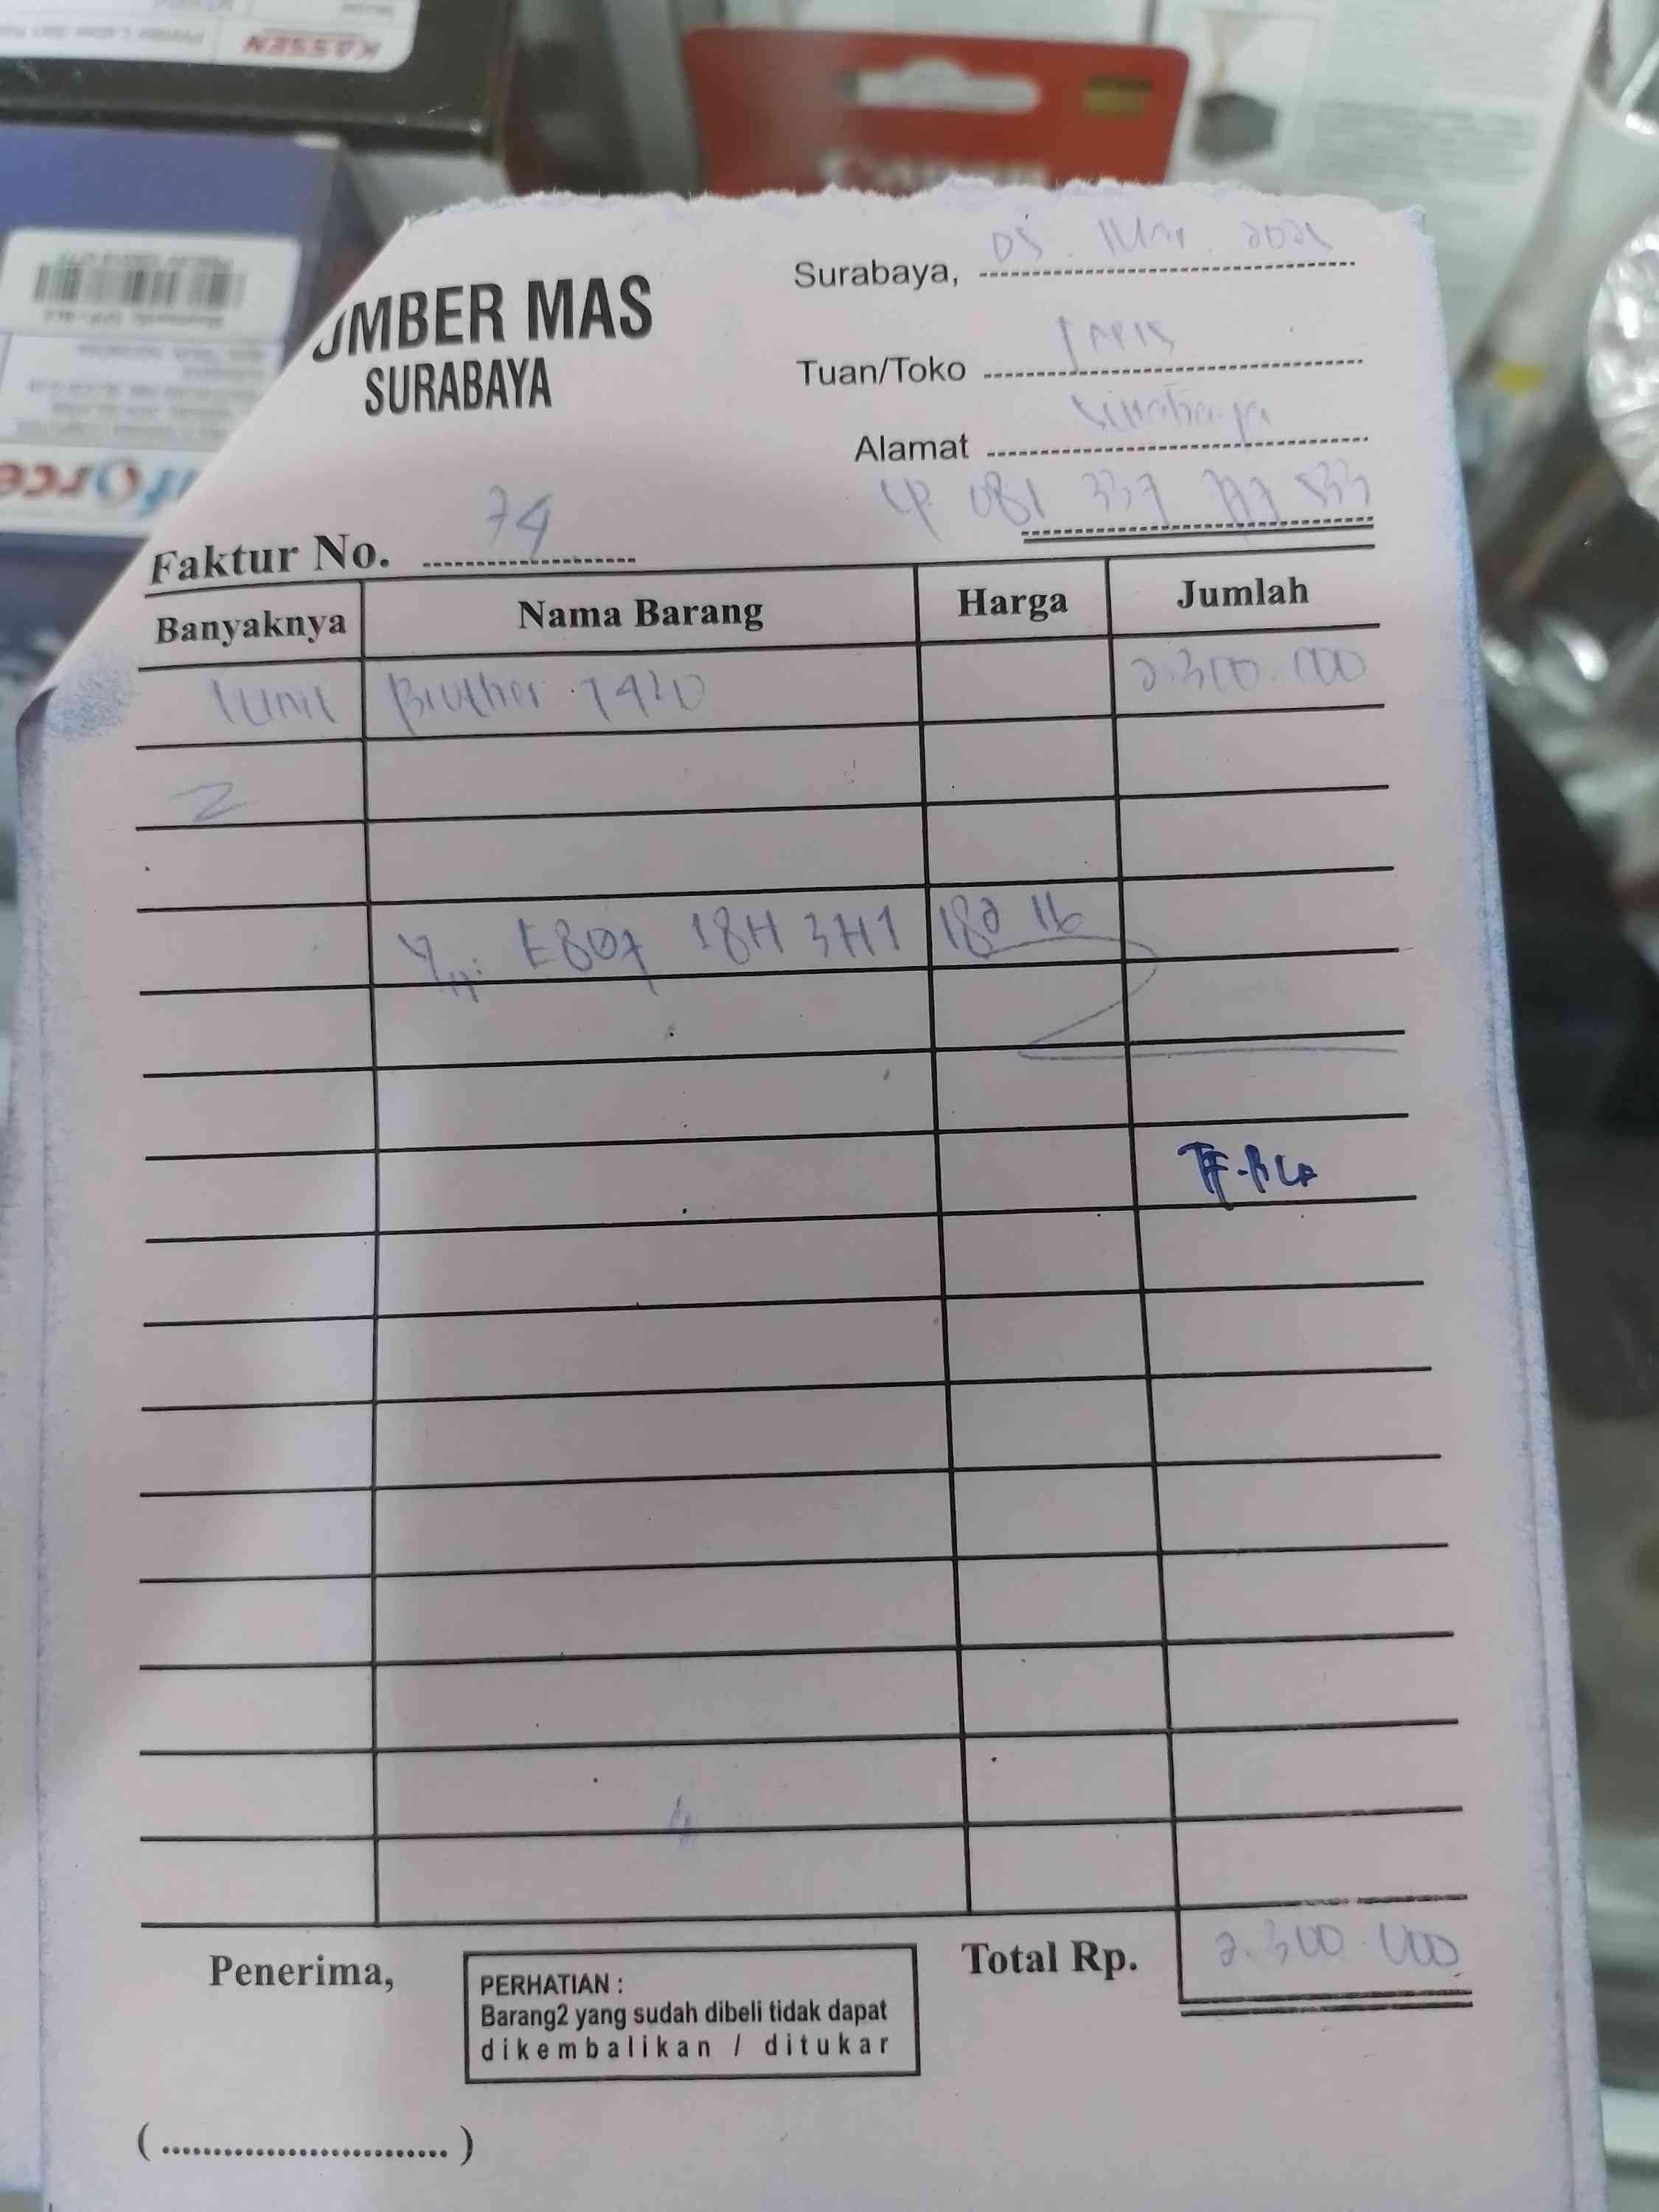 KASSEN
Canon
UMBER MAS
SURABAYA
Surabaya, 05 . Mar . 2025
Tuan/Toko
Alamat Surabaya
081 337
Faktur No. 74
Banyaknya Nama Barang Harga Jumlah
1 unit Brother T420 2.300.000
S/N: E807 18H 3H1 182 16
TF-BCA
Penerima, Total Rp. 2.300.000
PERHATIAN :
Barang2 yang sudah dibeli tidak dapat
dikembalikan / ditukar
(............................)